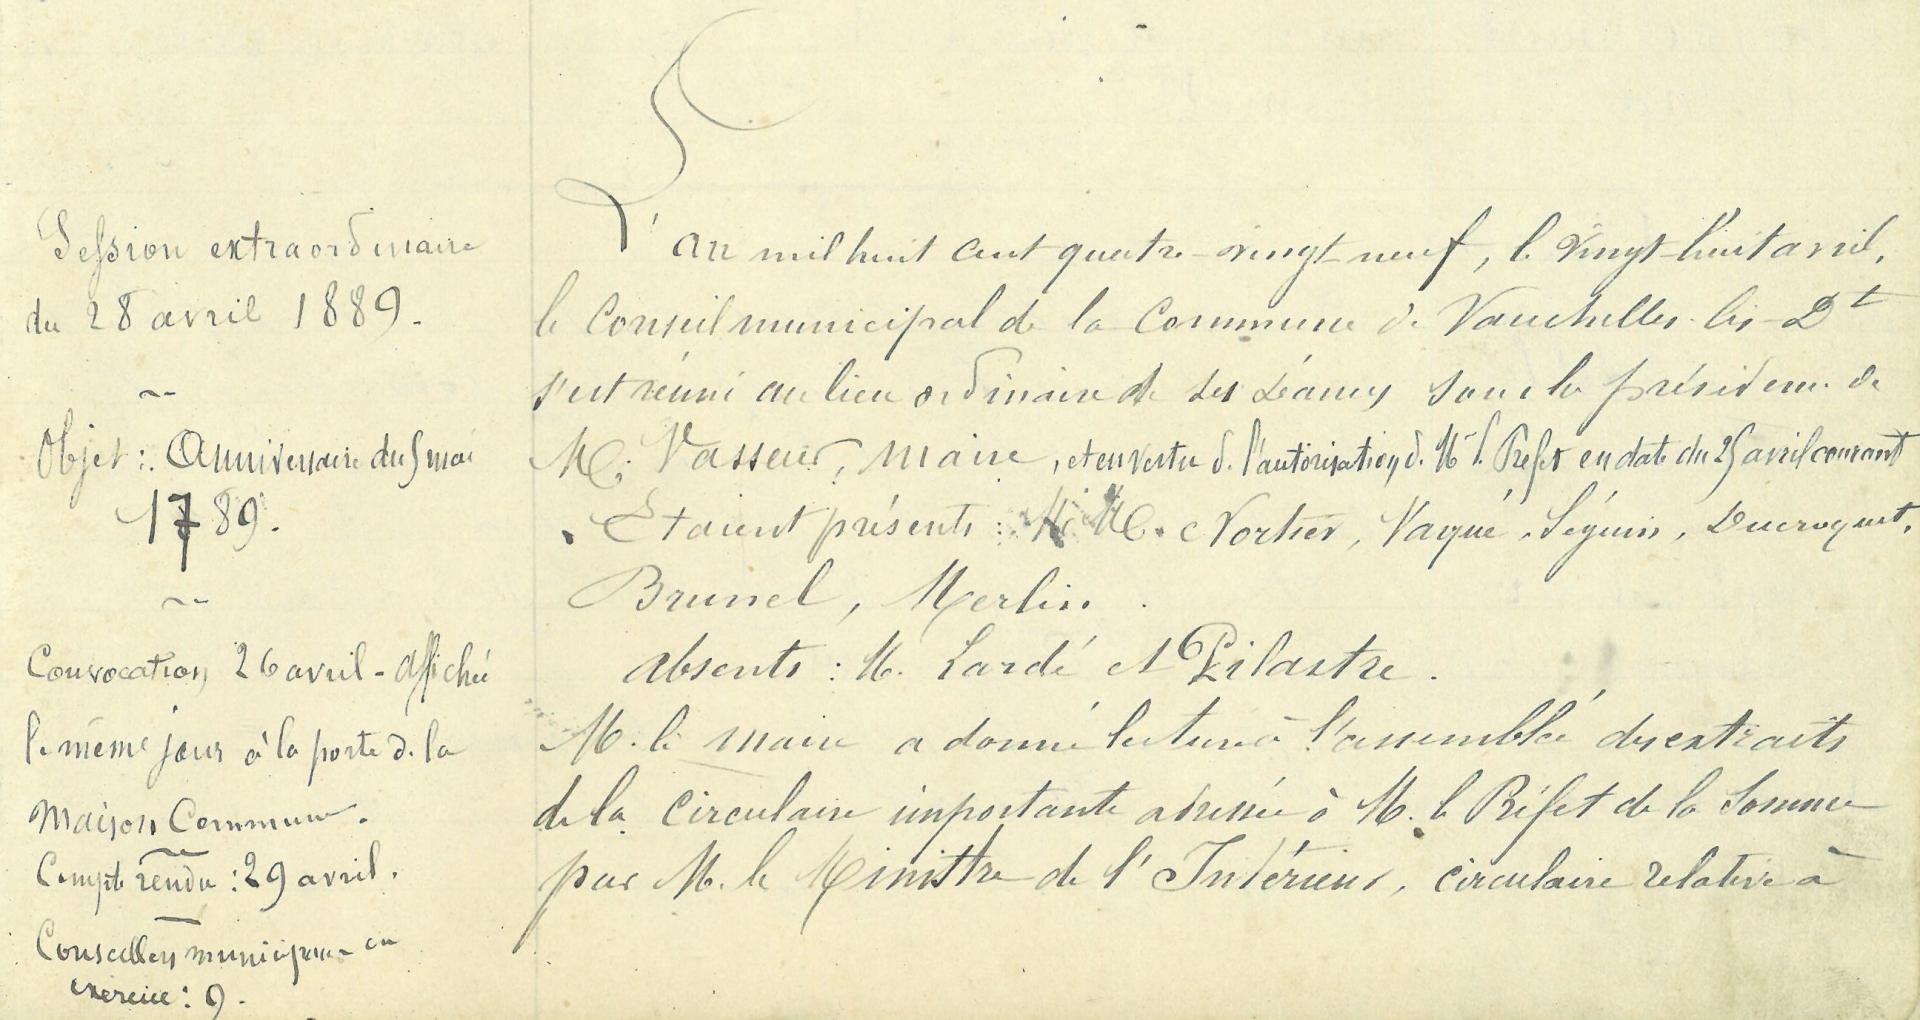 Session extraordinaire
du 28 avril 1889.
~
Objet : Anniversaire du 5 mai
1789.
~
Convocation 26 avril - Affiché
le même jour à la porte de la
Maison Commune.
Compte rendu : 29 avril.
Conseillers municipaux en
exercice : 9.
L'an mil huit cent quatre-vingt-neuf, le vingt-huit avril,
le Conseil municipal de la Commune de Vauchelles-les-Dt
s'est réuni au lieu ordinaire de ses séances sous la présidence de
M. Vasseur, maire, et en vertu de l'autorisation de Mr le Préfet en date du 25 avril courant
Etaient présents : M.M. Nortier, Vaqué, Séguin, Ducroquet,
Brunel, Merlin.
absents : M. Lardé et Pilastre.
M. le maire a donné lecture à l'assemblée des extraits
de la circulaire importante adressée à M. le Préfet de la Somme
par M. le Ministre de l'Intérieur, circulaire relative à